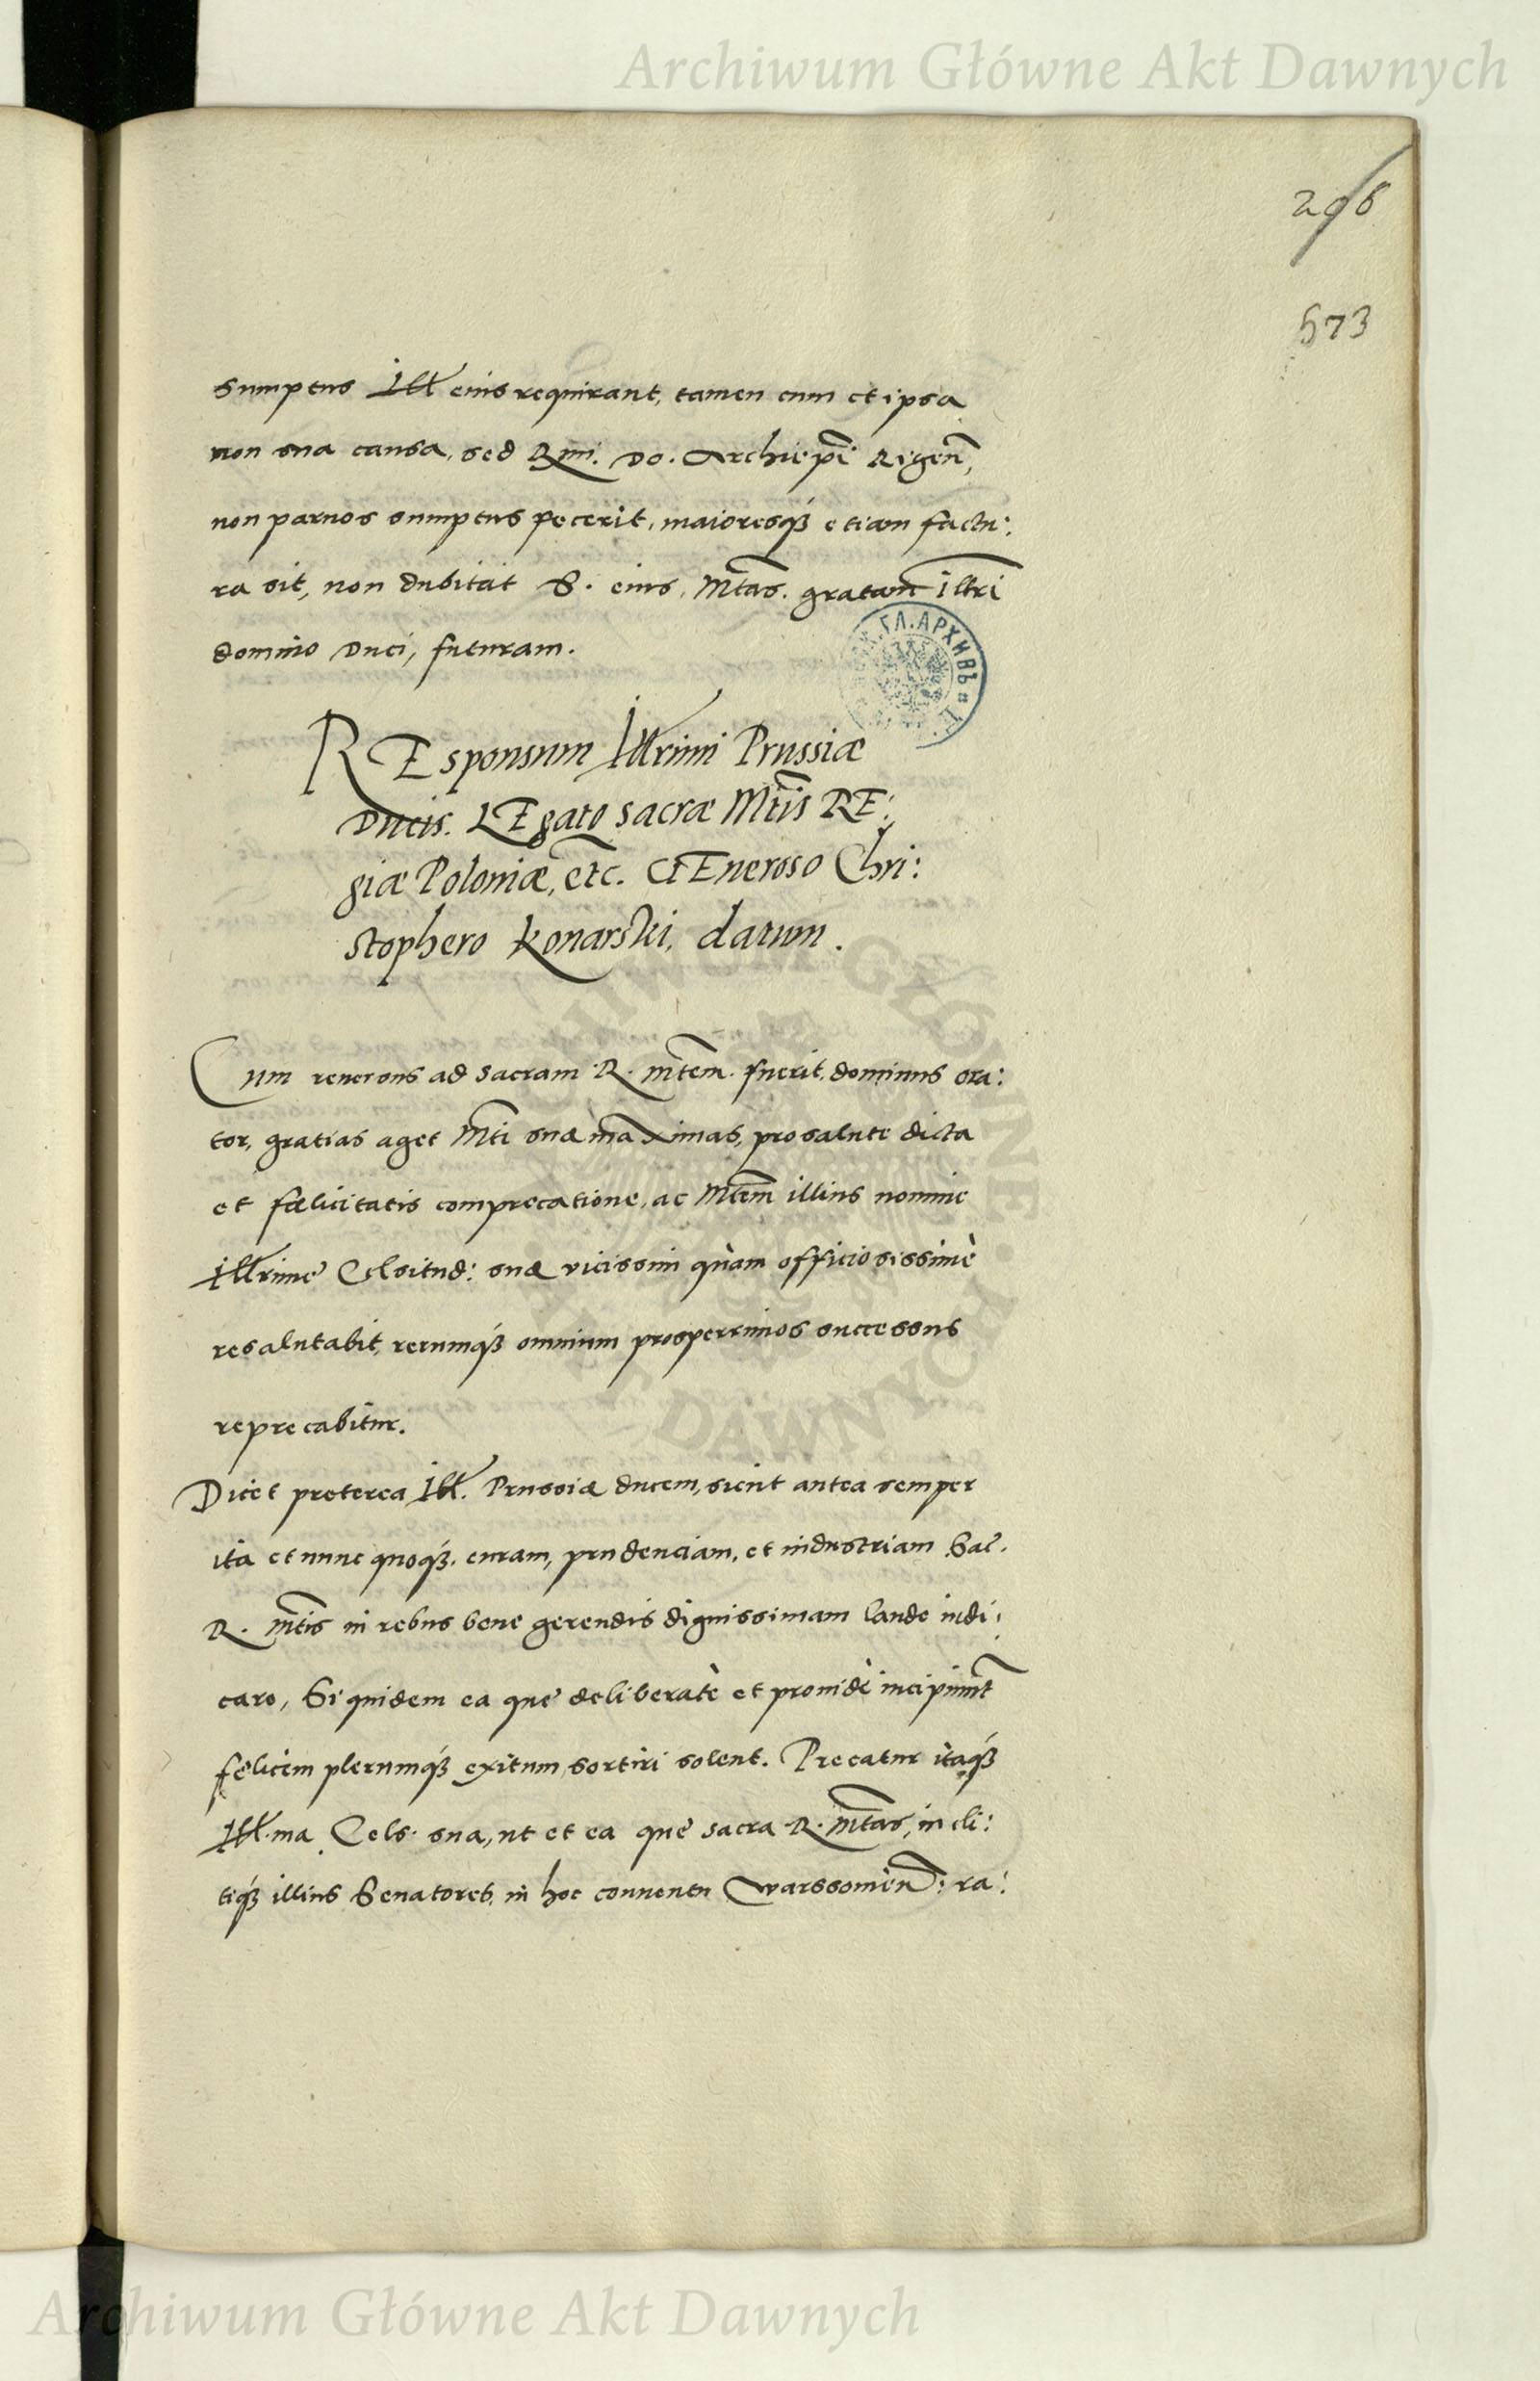 Archiwum Główne Akt Dawnych
296
573
sumptus Ill eius requirant, tamen cum et ipsa
non sua causa, sed Rmi. Do. Archiepi Rigen,
non paruos sumptus fecerit, maioresq́ʒ etiam factu:
ra sit, non dubitat S. eius Mtas. gratam Illri
domino Duci, futuram.
ГЛ. АРХИВЪ
REsponsum Illrimi Prussiæ
Ducis. LEgato sacræ Mtis RE:
giæ Poloniæ, etc. GEneroso Chri:
stophero Konarski, datum.
Cum reuersus ad sacram R. mtem. fuerit, dominus ora:
tor, gratias aget Mti suæ maximas, pro salute dicta
et fælicitatis comprecatione, ac Mtem illius nomine
Illrime Celsitud: suæ vicissim quàm officiosissimè
resalutabit, rerumq́ʒ omnium prosperrimos successus
reprecabitur.
Dicet preterea Ill. Prussiæ ducem, sicut antea semper
ita et nunc quoq́ʒ. curam, prudenciam, et industriam Sac.
R. mtis in rebus bene gerendis dignissimam laude iudi:
care, Siquidem ea que deliberatè et prouidè incipiunt
felicem plerumq́ʒ exitum sortiri solent. Precatur itaq́ʒ
Ill.ma Cels. sua, ut et ea que sacra R. mtas, incli:
tiq́ʒ illius Senatores, in hoc conuentu Warssouien: ra:
ARCHIWUM GŁÓWNE AKT DAWNYCH
Archiwum Główne Akt Dawnych